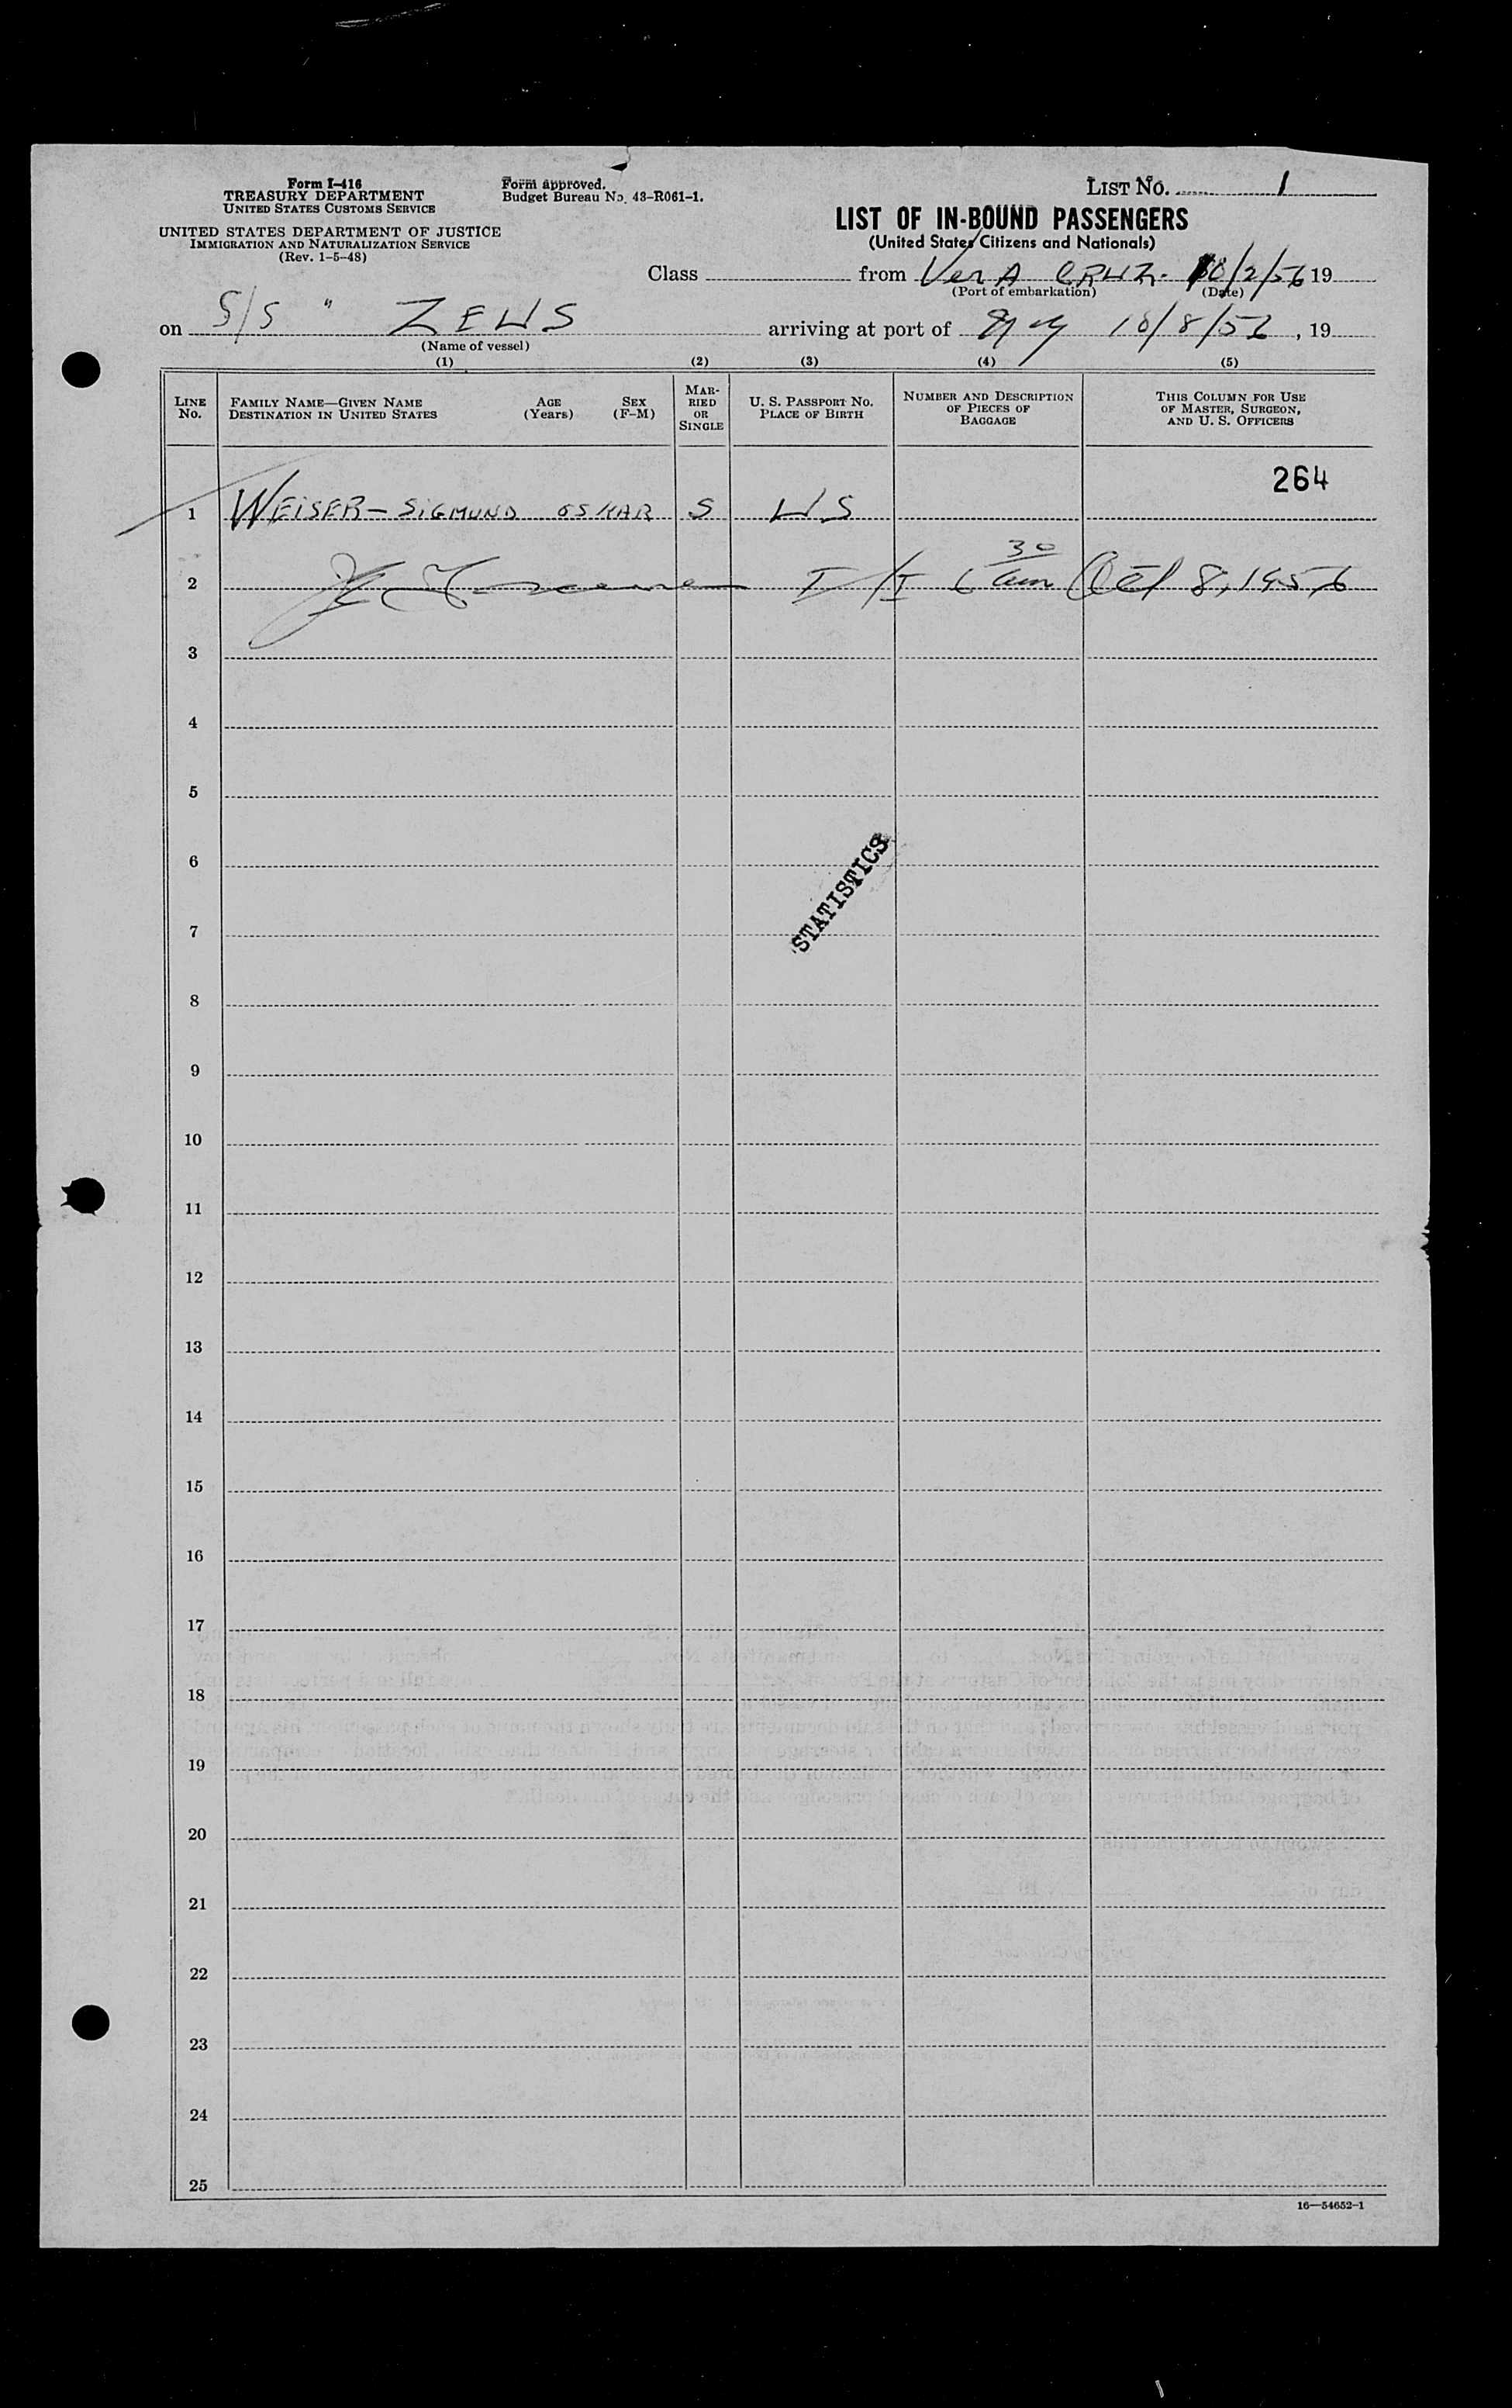 Form I-416
TREASURY DEPARTMENT
UNITED STATES CUSTOMS SERVICE
UNITED STATES DEPARTMENT OF JUSTICE
IMMIGRATION AND NATURALIZATION SERVICE
(Rev. 1-5-48)
Form approved.
Budget Bureau No. 43-R061-1.
LIST No. 1
LIST OF IN-BOUND PASSENGERS
(United States Citizens and Nationals)
Class from Vera CRUZ. 10/2/56 19
(Port of embarkation) (Date)
on S/S " ZEUS arriving at port of NY 10/8/56, 19
(Name of vessel)
(1) (2) (3) (4) (5)
LINE No. FAMILY NAME—GIVEN NAME DESTINATION IN UNITED STATES AGE (Years) SEX (F-M) MARRIED OR SINGLE U. S. PASSPORT No. PLACE OF BIRTH NUMBER AND DESCRIPTION OF PIECES OF BAGGAGE THIS COLUMN FOR USE OF MASTER, SURGEON, AND U. S. OFFICERS
264
1 WEISER- SIGMUND OSKAR S US
2 I/I 6 30 am Oct 8, 1956
3
4
5
6
STATISTICS
7
8
9
10
11
12
13
14
15
16
17
18
19
20
21
22
23
24
25
16—54652-1